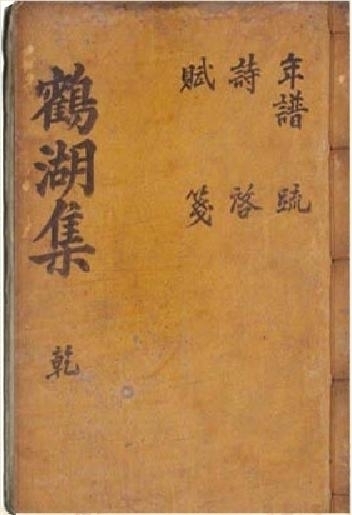 年譜 疏
詩 啓
賦 箋
鶴湖集 乾